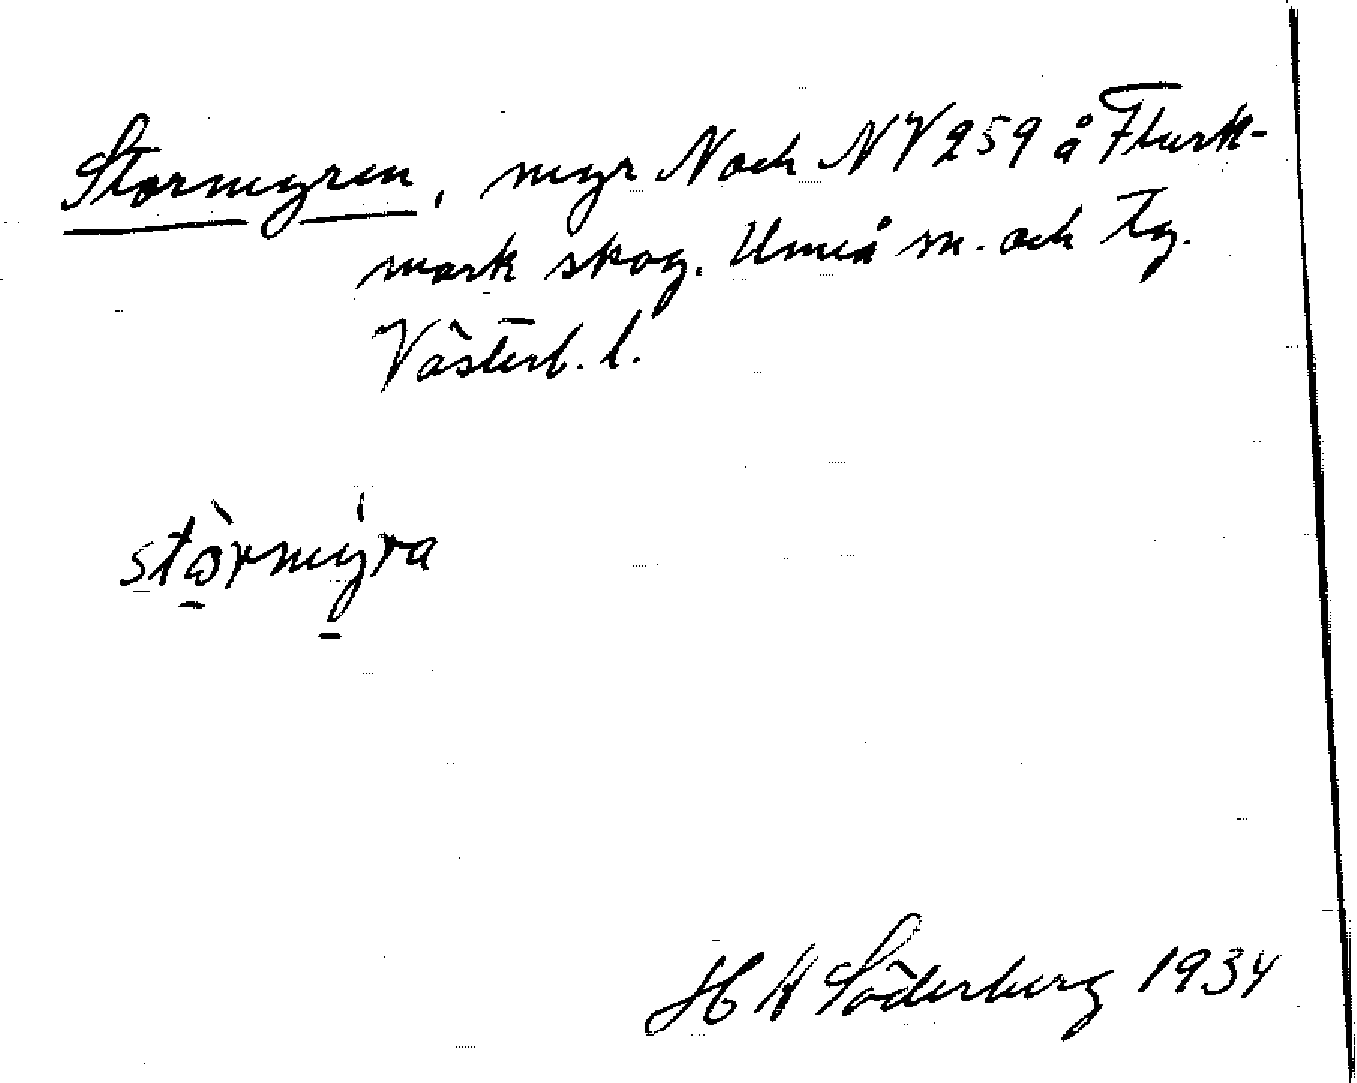 Stormyren, myr N och NV 259 å Flurk-
mark skog. Umeå sn. och tg.
Västerb. l.
stòrmýra
H W Söderberg 1934